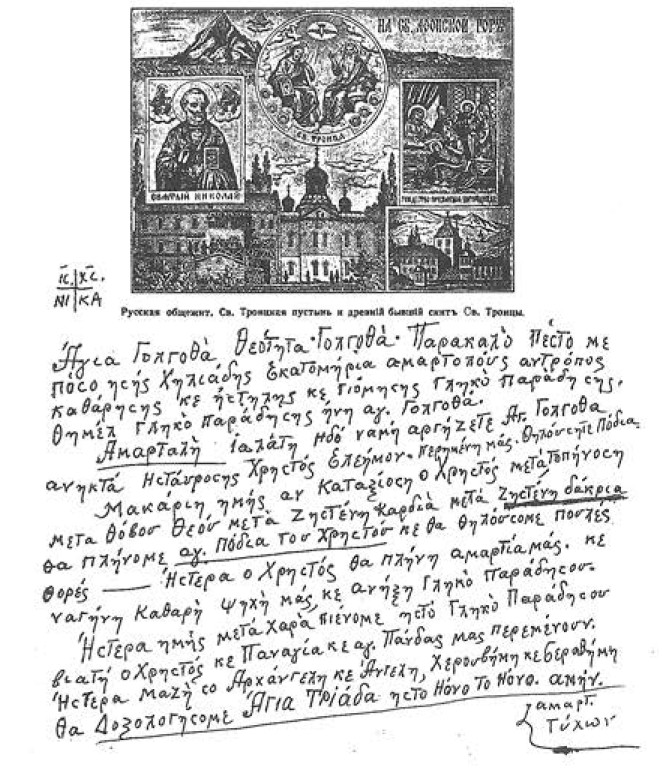 НА СВ. АѲОНСКОЙ ГОРѢ
СВ. ТРОИЦА
СВЯТЫЙ НИКОЛАЙ
IC. XC.
NI KA
Русская общежит. Св. Троицкая пустынь и древній бывшій скитъ Св. Троицы.
Ἁγια Γολγοθὰ Θεότητα Γολγοθὰ. Παρακαλὸ Πέςτο με
πόςο ηςής Χηλιάδης Εκατομήρια αμαρτολους αντρόπος
καθάρηςης κε ήςτηλης κε γιόμηςης Γληκὸ Παράδηςης.
Θημέλ Γληκὸ παράδηςης ήνη αγ. Γολγοθά.
Αμαρταλὴ ιαλάτη ηδό ναμὴ αργήζετε Αγ. Γολγοθα
ανηκτά Ηςτάυροςης Χρηςτός Ελεήμον. περημένη μάς. Θηλούςητε Πόδια.
Μακάριη ημής αν καταξίοςη ο Χρηςτός μετὰ τοπήνοςη
μετα Φόβου Θεού μετὰ Ζηςτένη καρδιὰ μετὰ Ζηςτένη δάκρια
θα πλήνομε αγ. Πόδια του Χρηςτού κε θα Θηλόυςομε πουλές
Φορές — Ήςτερα ο Χρηςτός θα πλήνη αμαρτία μάς. κε
ναγήνη Καθαρὴ ψηχὴ μάς, κε ανήξη Γληκὸ Παράδηςου.
Ήςτερα ημής μετά χαρά πιένομε ηςτό Γληκὸ Παράδηςου
γιατή ο Χρηςτός κε Παναγία κε αγ. Πάνδας μας περεμένουν.
Ήςτερα Μαζή ςο Αρχάνγελη κε Άνγελη, Χερουβήμη κε Ϲεραθήμη
θα Δοξολογήςομε Ἁγια Τριάδα ηςτο Νόνο το Νόνο. αμήν.
αμαρτ.
Τύχων